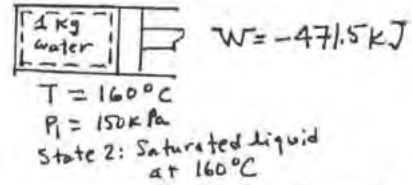 1 kg
water
W = -471.5 kJ
T = 160°C
P₁ = 150 kPa
State 2: Saturated liquid
at 160°C